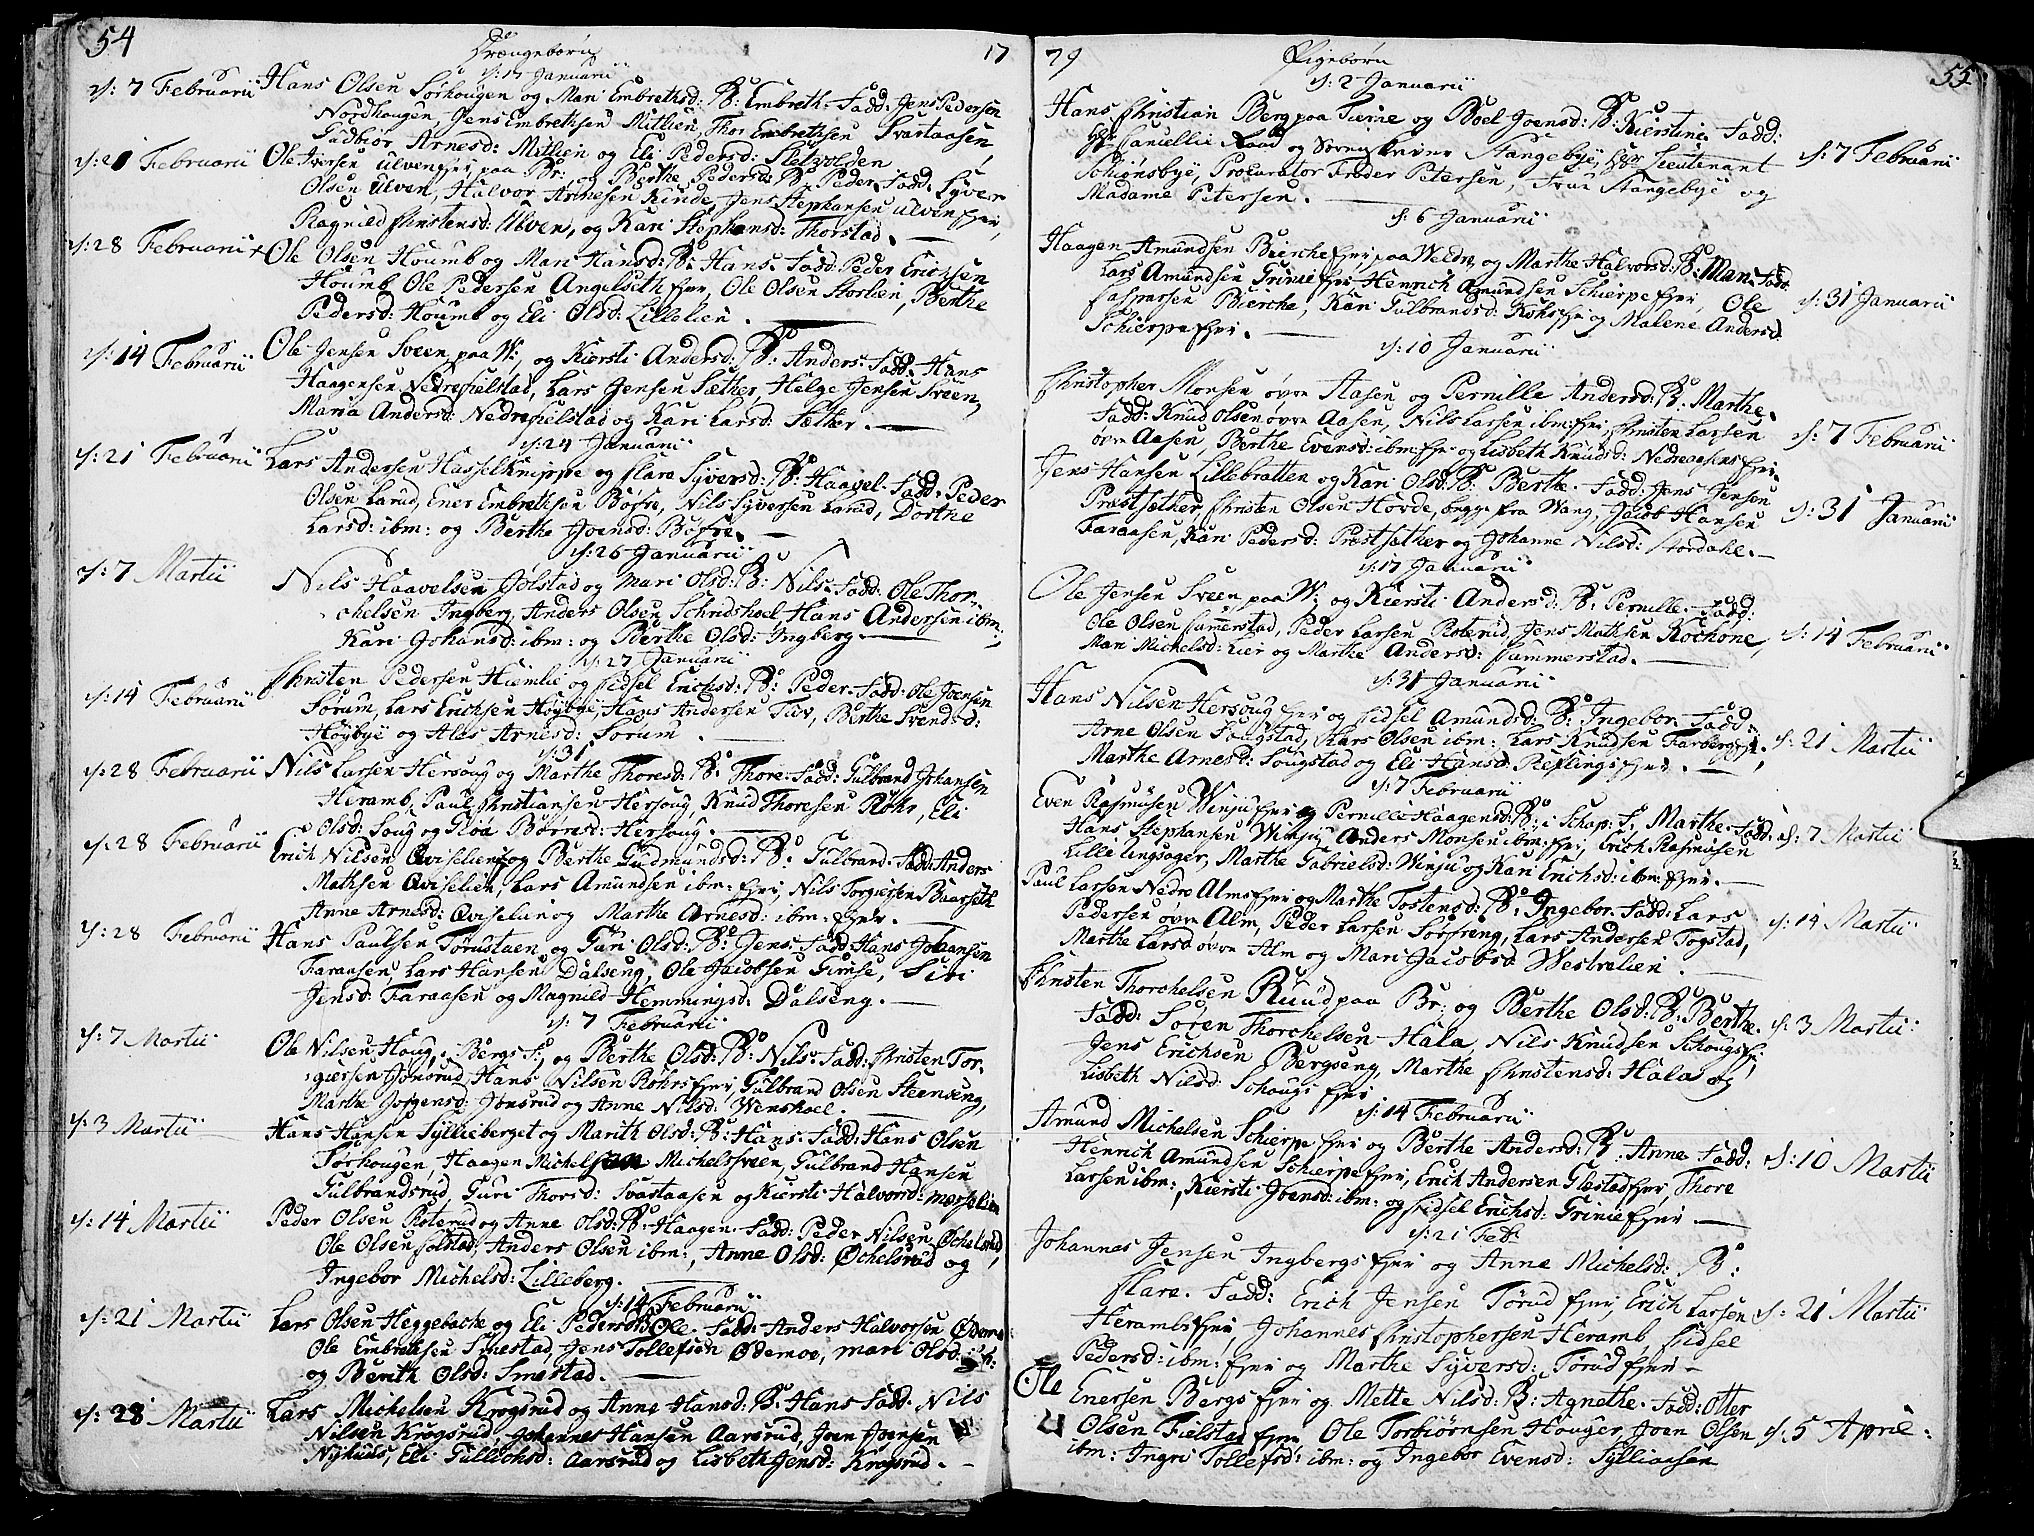 54
Drængebørn
17
d: 17 Januarii
d: 7 Februarii Hans Olsen Sørhougen og Mari Embrethsd: B: Embreth. Fadd: Jens Pedersen
Nordhougen, Jens Embrethsen Mitlien, Thor Embrethsen Svartaasen,
Gudbiør Arnesd: Mitlien og Eli Pedersd: Sletvolden
d: 21 Februarii Ole Iversen Ulvenejer paa Br: og Berthe Pedersd: B: Peder. Fadd: Syver
Olsen Ulven, Halvor Arnesen Kinde, Jens Stephansen Ulvenejer,
Ragnild Christensd: Ulven, og Kari Stephansd: Thorstad.
d: 28 Februarii Ole Olsen Houmb og Mari Hansd: B: Hans. Fadd: Peder Erichsen
Houmb, Ole Pedersen Angelseth ejer, Ole Olsen Storlien, Berthe
Pedersd: Houmb og Eli Olsd: Lillelien.
d: 14 Februarii Ole Jensen Sveen paa W:, og Kiersti Andersd: B: Anders. Fadd: Hans
Haagensen Nedrefielstad, Lars Jensen Sæther, Helge Jensen Sveen,
Maria Andersd: Nedrefielstad og Kari Larsd: Sæther.
d: 24 Januarii
d: 21 Februarii Lars Andersen Hasselknippe og Clara Syversd: B: Haagel. Fadd: Peder
Olsen Larud, Ener Embrethsen Bøfre, Nils Syversen Larud, Dorthe
Larsd: ibm: og Berthe Joensd: Bøfre.
d: 26 Januarii
d: 7 Martii Nils Haavelsen Jølstad og Mari Olsd: B: Nils. Fadd: Ole Thor-
chelsen Ingberg, Anders Olsen Schridshoel, Hans Andersen ibm:,
Kari Johansd: ibm: og Berthe Olsd: Ingberg.
d: 27 Januarii
d: 14 Februarii Christen Pedersen Hiemlie og Sidsel Erichsd: B: Peder. Fadd: Ole Joensen
Sorum, Lars Erichsen Høybye, Hans Andersen Tuv, Berthe Svendsd:
Høybye og Ales Arnesd: Sorum.
d: 31
d: 28 Februarii Nils Larsen Hersoug og Marthe Thoresd: B: Thore. Fadd: Gulbrand Johansen
Heramb, Paul Christiansen Hersoug, Knud Thoresen Røhr, Eli
Olsd: Soug og Gloa Børresd: Hersoug.
d: 28 Februarii Erich Nilsen Qviselien og Berthe Gudmundsd: B: Gulbrand. Fadd: Anders
Mathsen Qviselien, Lars Amundsen ibm: ejer, Nils Torgersen Baarseth
Anne Arnesd: Qviselien og Marthe Arnesd: ibm: ejer.
d: 28 Februarii Hans Paulsen Torudstuen og Guri Olsd: B: Jens. Fadd: Hans Johansen
Faraasen, Lars Hansen Dalseng, Ole Jacobsen Gimse, Siri
Jensd: Faraasen og Magnild Hemmingsd: Dalseng.
d: 7 Februarii
d: 7 Martii Ole Nilsen Houg, i Bergs S:, og Berthe Olsd: B: Nils. Fadd: Christen Tor-
giersen Jonsrud, Hans Nilsen Røhrsejer, Gulbrand Olsen Steenseng,
Marthe Jofgensd: Jonsrud og Anne Nilsd: Wenskoel.
d: 3 Martii Hans Hansen Syllieberget og Marith Olsd: B: Hans. Fadd: Hans Olsen
Sørhougen, Haagen Michelsen Michelssveen, Gulbrand Hansen
Gulbrandsrud, Guri Thorsd: Svartaasen og Kiersti Halvorsd: Morselien
d: 14 Martii Peder Olsen Roterud og Anne Olsd: B: Haagen. Fadd: Peder Nilsen Øchelsrud,
Ole Olsen Colstad, Anders Olsen ibm:, Anne Olsd: Øchelsrud og
Ingebor Michelsd: Lilleberg.
d: 14 Februarii
d: 21 Martii Lars Olsen Heggebache og Eli Pedersd: B: Ole. Fadd: Anders Halvorsen Ødemoe
Ole Embrethsen Smestad, Jens Tollefsen Ødemoe, Mari Olsd:
og Berith Olsd: Smestad.
d: 28 Martii Lars Michelsen Krogsrud og Anne Hansd: B: Hans. Fadd: Nils
Nilsen Krogsrud, Johannes Hansen Aarsrud, Joen Joensen
Nyhuus, Eli Gullichsd: Aarsrud og Lisbeth Jensd: Krogsrud.
79
Pigebørn
55
d: 2 Januarii
Hans Christian Berg paa Tierne og Boel Joensd: B: Kierstine. Fadd:
Hr Cancellie Raad og Sorenskriver Stangebye, Hr Lieutenant d: 7 Februarii
Schiønsbye, Procurator Frider Petersen, Frue Stangebye og
Madame Petersen.
d: 6 Januarii
Haagen Amundsen Bierckeejer paa Weldre og Marthe Halvorsd: B: Mari. Fadd:
Lars Amundsen Grinieejer, Henrich Amundsen Schierpeejer, Ole d: 31 Januarii
Caspersen Bierche, Kari Gulbrandsd: Kohsejer og Malene Andersd:
Schierpeejer.
d: 10 Januarii
Christopher Monsen øvre Aasen og Pernille Andersd: B: Marthe.
Fadd: Knud Olsen øvre Aasen, Nils Larsen ibm: ejer, Christen Larsen d: 7 Februarii
øvre Aasen, Berthe Evensd: ibm: ejer og Lisbeth Knudsd: Nedreaasensejer
Jens Hansen Lillebratten og Kari Olsd: B: Berthe. Fadd: Jens Jensen
Prestsæther, Christen Olsen Hovde, begge fra Wang, Jacob Hansen d: 31 Januarii
Faraasen, Kari Pedersd: Prestsæther og Johanne Nilsd: Stordahl.
d: 17 Januarii
Ole Jensen Sveen paa W: og Kiersti Andersd: B: Pernille. Fadd:
Ole Olsen Cammerstad, Peder Larsen Roterud, Jens Mathsen Kochone, d: 14 Februarii
Mari Michelsd: Lier og Marthe Andersd: Cammerstad.
d: 31 Januarii
Hans Nilsen Hersoug ejer og Sidsel Amundsd: B: Ingebor. Fadd:
Arne Olsen Sougstad, Lars Olsen ibm: Lars Knudsen Farbergejer, d: 21 Martii
Marthe Arnesd: Sougstad og Eli Hansd: Reflingsejer.
d: 7 Februarii
Even Rasmusen Winjuejer og Pernille Haagensd: B: i Schap: S: Marthe. Fadd: d: 7 Martii
Hans Stephansen Winju, Anders Monsen ibm: ejer, Erich Rasmusen
Lille Lingsager, Marthe Gabrielsd: Winju og Kari Erichsd: ibm: ejer.
Paul Larsen Nedre Almsejer og Marthe Tostensd: B: Ingebor. Fadd: Lars
Pedersen øvre Alm, Peder Larsen Sorfreng, Lars Andersen Togstad, d: 14 Martii
Marthe Larsd: øvre Alm og Mari Jacobsd: Westrelien.
Christen Thorchelsen Ruud paa Br: og Berthe Olsd: B: Berthe.
Fadd: Søren Thorchelsen Hala, Nils Knudsen Schougsejer, d: 3 Martii
Jens Erichsen Bergseng, Marthe Christensd: Hala og
Lisbeth Nilsd: Schougsejer
d: 14 Februarii
Amund Michelsen Schierpeejer og Berthe Andersd: B: Anne. Fadd:
Henrich Amundsen Schierpeejer, Erich Andersen Glæstadejer, Thore d: 10 Martii
Larsen ibm:, Kiersti Joensd: ibm: og Sidsel Erichsd: Grinieejer.
d: 21 Feb:
Johannes Jensen Ingbergsejer og Anne Michelsd: B:
Clara. Fadd: Erich Jensen Torudejer, Erich Larsen d: 21 Martii
Herambsejer, Johannes Christophersen Heramb, Sidsel
Pedersd: ibm: ejer og Marthe Syversd: Torudejer.
Ole Enersen Bergsejer og Mette Nilsd: B: Agnethe. Fadd: Otter
Olsen Fielstadejer, Ole Torbiørnsen Houger, Joen Olsen d: 5 April:
ibm: Ingri Tollefsd: ibm: og Ingebor Evensd: Sylliaasen